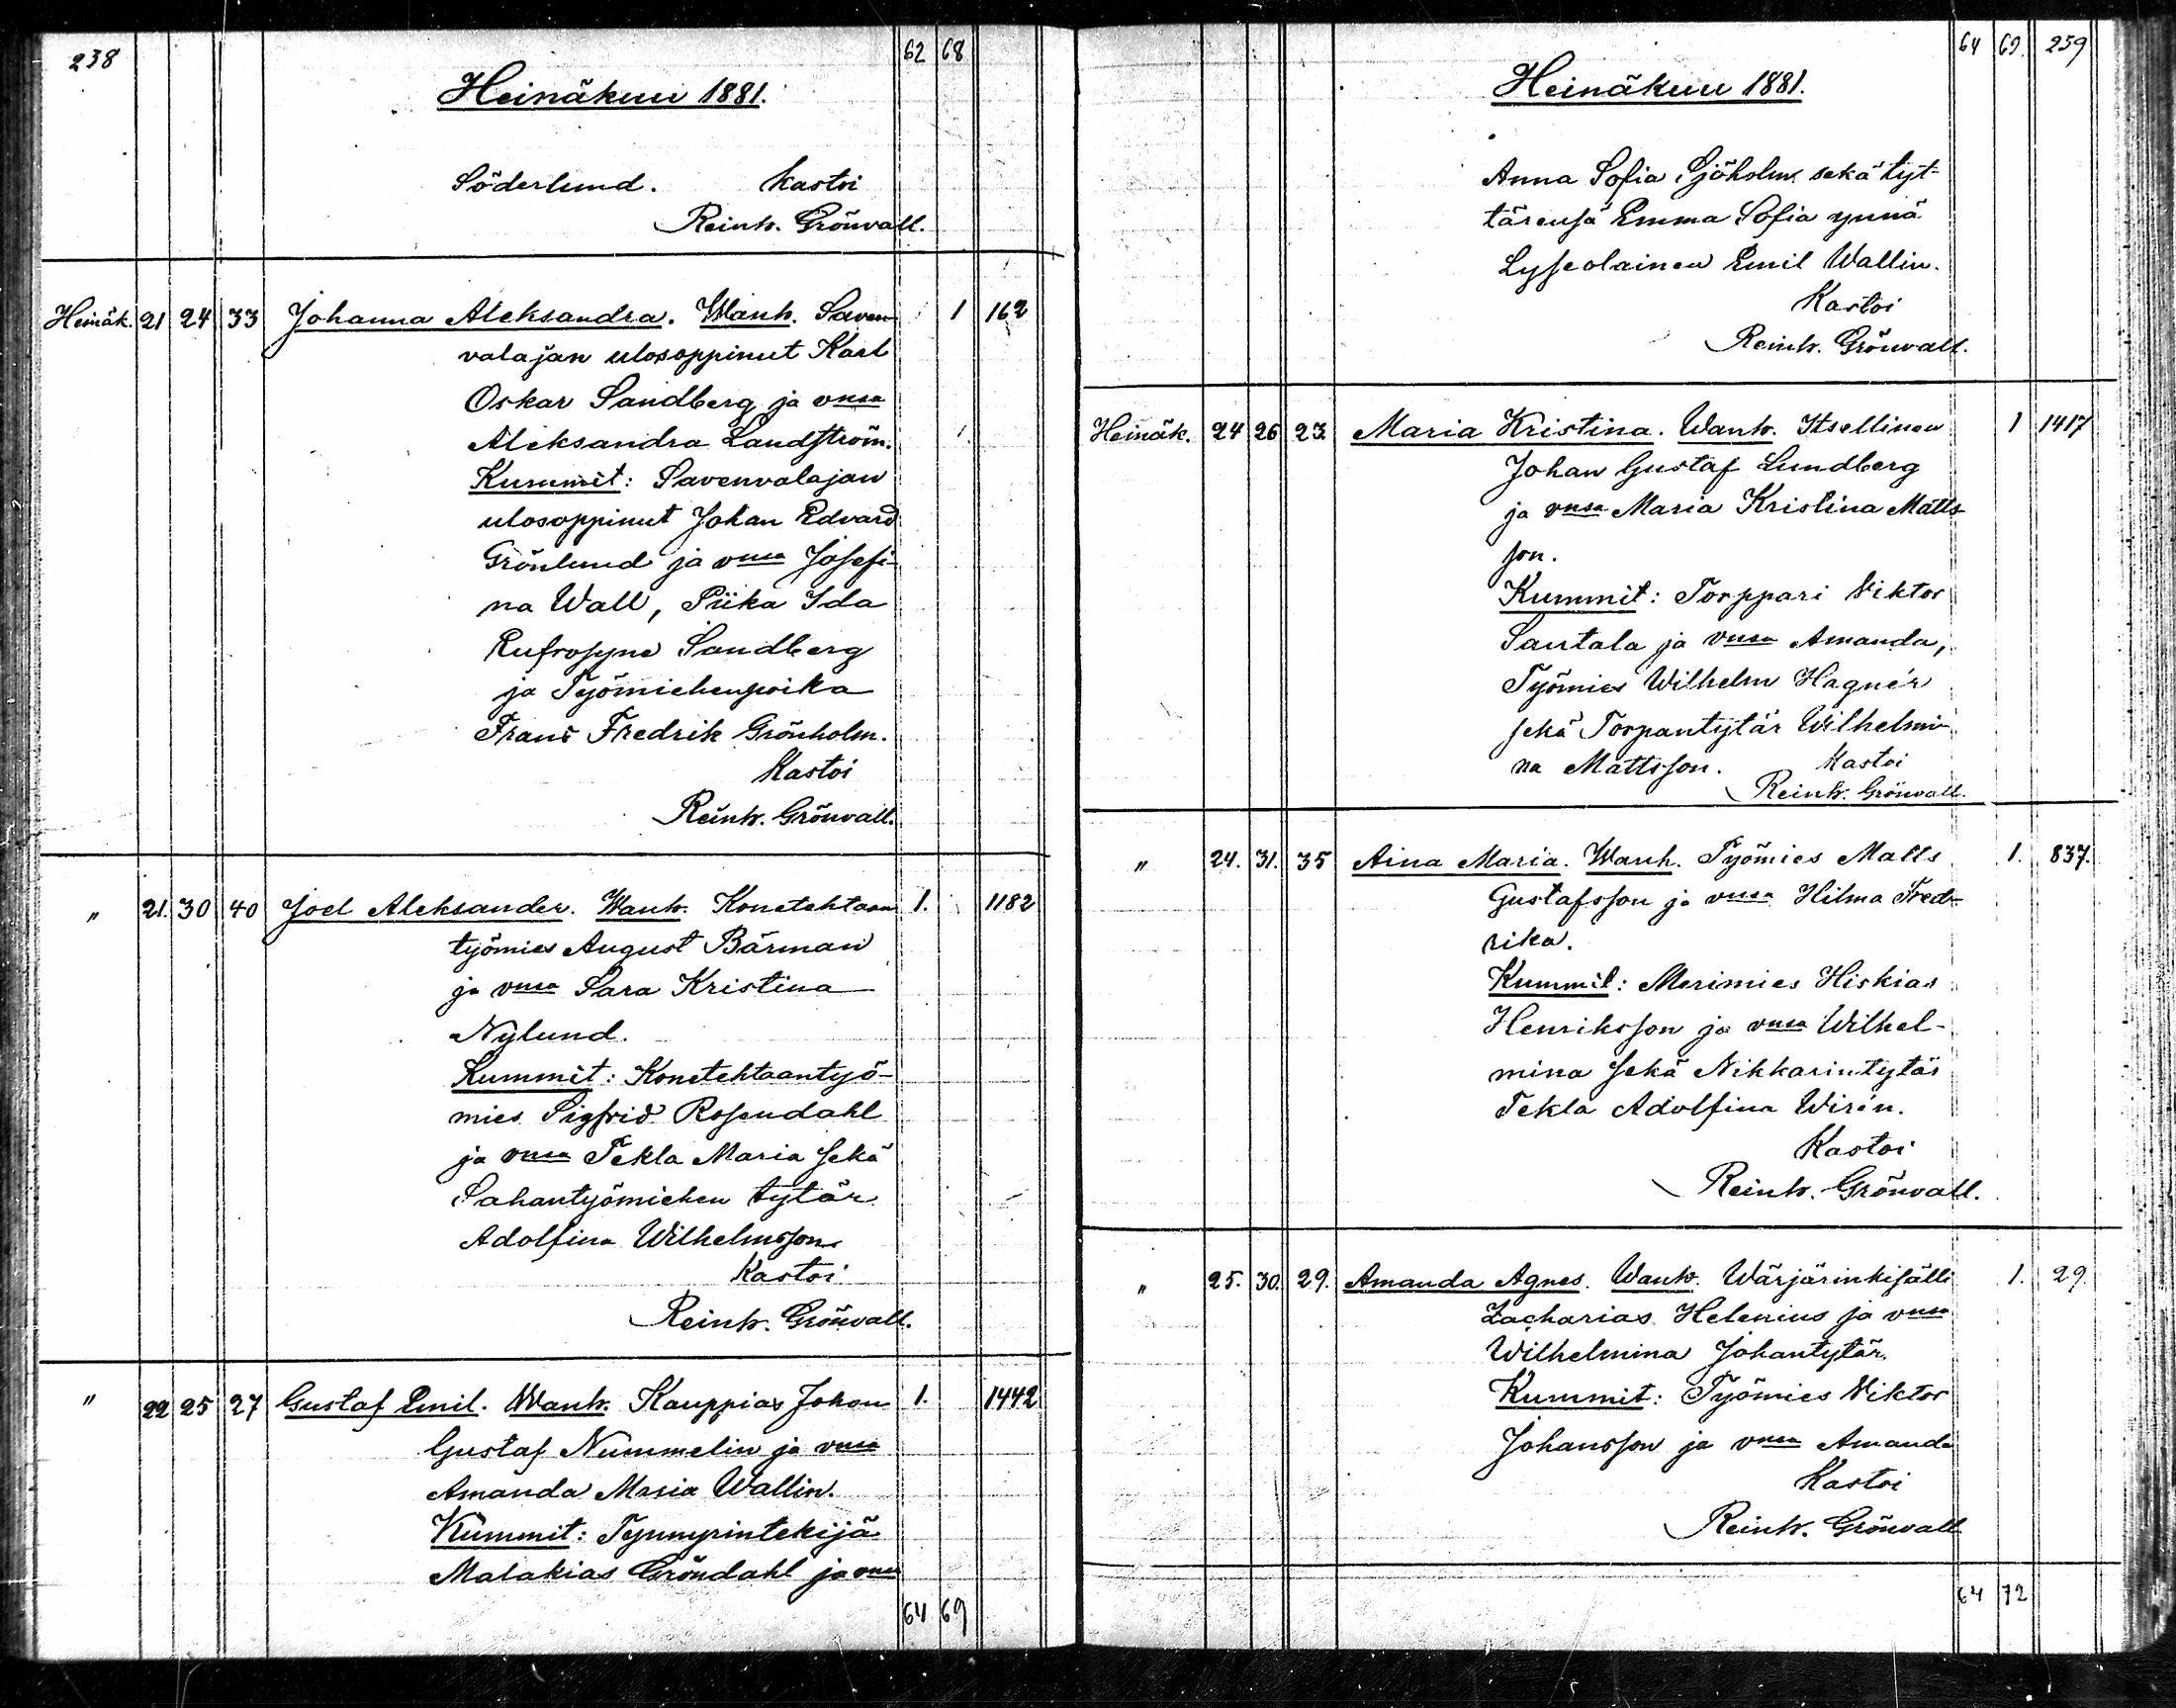 238 62 68
Heinäkuu 1881.
Söderlund. Kastoi
Reinh. Grönvall.
Heinäk. 21 24 33 Johanna Aleksandra. Wanh. Saven- 1 162
valajan ulosoppinut Karl
Oskar Sandberg ja vnsa
Aleksandra Landström.
Kummit: Savenvalajan
ulosoppinut Johan Edvard
Grönlund ja vnsa Josefi-
na Wall, Piika Ida
Eufrosyne Sandberg
ja Työmiehenpoika
Frans Fredrik Grönholm.
Kastoi
Reinh. Grönvall.
" 21. 30 40 Joel Aleksander. Wanh. Konetehtaan 1. 1182
työmies August Bärman
ja vnsa Sara Kristina
Nylund.
Kummit: Konetehtaantyö-
mies Sigfrid Rosendahl
ja vnsa Tekla Maria sekä
Sahantyömiehen tytär
Adolfina Wilhelmsson.
Kastoi
Reinh. Grönvall.
" 22 25 27 Gustaf Emil. Wanh. Kauppias Johan 1. 1442
Gustaf Nummelin ja vnsa
Amanda Maria Wallin.
Kummit: Tynnyrintekijä
Malakias Gröndahl ja vnsa
64 69
64 69. 259
Heinäkuu 1881.
Anna Sofia Sjöholm sekä tyt-
tärensä Emma Sofia ynnä
Lyseolainen Emil Wallin.
Kastoi
Reinh. Grönvall.
Heinäk. 24 26 23 Maria Kristina. Wanh. Itsellinen 1 1417
Johan Gustaf Lundberg
ja vnsa Maria Kristina Matts-
son.
Kummit: Torppari Viktor
Santala ja vnsa Amanda,
Työmies Wilhelm Hagnér
sekä Torpantytär Wilhelmi-
na Mattsson. Kastoi
Reinh. Grönvall.
" 24. 31. 35 Aina Maria. Wanh. Työmies Matts 1. 837.
Gustafsson ja vnsa Hilma Fred-
rika.
Kummit: Merimies Hiskias
Henriksson ja vnsa Wilhel-
mina sekä Nikkarintytär
Tekla Adolfina Wirén.
Kastoi
Reinh. Grönvall.
" 25. 30. 29. Amanda Agnes. Wanh. Wärjärinkisälli 1. 29.
Zacharias Helenius ja vnsa
Wilhelmina Johantytär.
Kummit: Työmies Viktor
Johansson ja vnsa Amanda
Kastoi
Reinh. Grönvall
64 72